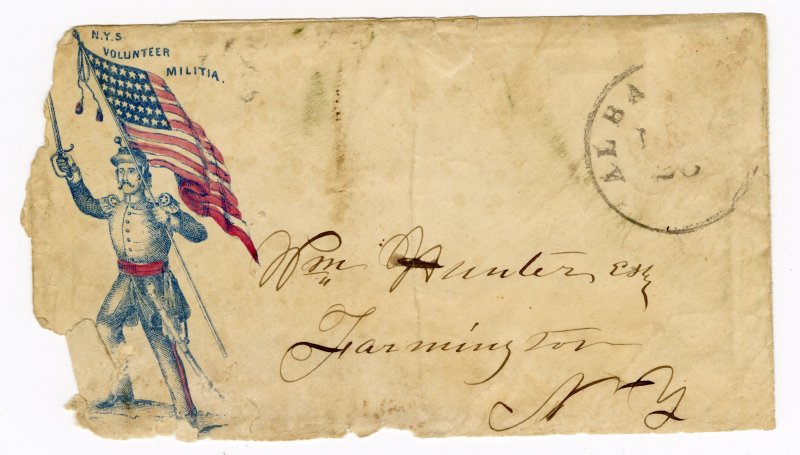 N.Y.S.
VOLUNTEER
MILITIA.
ALBA
Wm Hunter Esq
Farmington
N Y